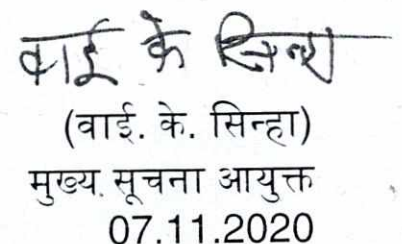 वाई के सिन्हा
(वाई. के. सिन्हा)
मुख्य सूचना आयुक्त
07.11.2020